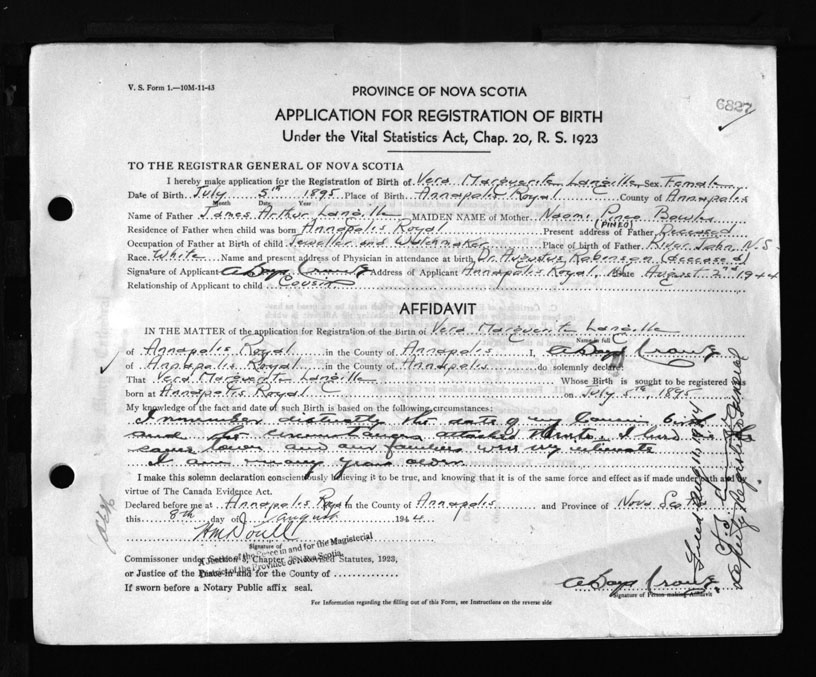 V. S. Form 1.—10M-11-43
PROVINCE OF NOVA SCOTIA
6827
APPLICATION FOR REGISTRATION OF BIRTH
Under the Vital Statistics Act, Chap. 20, R. S. 1923
TO THE REGISTRAR GENERAL OF NOVA SCOTIA
I hereby make application for the Registration of Birth of Vera Marguerite Langille Sex Female
Date of Birth July 5th 1895 Place of Birth Annapolis Royal County of Annapolis
Month Date Year
Name of Father James Arthur Langille MAIDEN NAME of Mother Naomi Pineo Bowles
(PINEO)
Residence of Father when child was born Annapolis Royal Present address of Father Deceased
Occupation of Father at Birth of child Jeweller and Watchmaker Place of birth of Father River John N.S.
Race White Name and present address of Physician in attendance at birth Dr. Augustus Robinson (deceased)
Signature of Applicant Address of Applicant Annapolis Royal, Date August 2nd 1944
Relationship of Applicant to child Cousin
AFFIDAVIT
IN THE MATTER of the application for Registration of the Birth of Vera Marguerite Langille
Name in full
of Annapolis Royal in the County of Annapolis I,
of Annapolis Royal in the County of Annapolis do solemnly declare:
That Vera Marguerite Langille Whose Birth is sought to be registered was
born at Annapolis Royal on July 5th, 1895
My knowledge of the fact and date of such Birth is based on the following circumstances:
I remember distinctly the date of my Cousin birth
and the circumstances attached thereto. I lived in
same town and our families were very intimate
I am many years older
I make this solemn declaration conscienciously believing it to be true, and knowing that it is of the same force and effect as if made under oath and
virtue of The Canada Evidence Act.
Declared before me at Annapolis Royal in the County of Annapolis and Province of Nova Sco
this 8th day of August 1944
Signature of
A Justice of the Peace in and for the Magisterial
District of the Province of Nova Scotia.
Commissioner under Section 3, Chapter Revised Statutes, 1923,
or Justice of the Peace in and for the County of
If sworn before a Notary Public affix seal.
Signature of Person making Affidavit
For Information regarding the filling out of this Form, see Instructions on the reverse side
Filed Aug 11, 1944
Deputy Registrar General